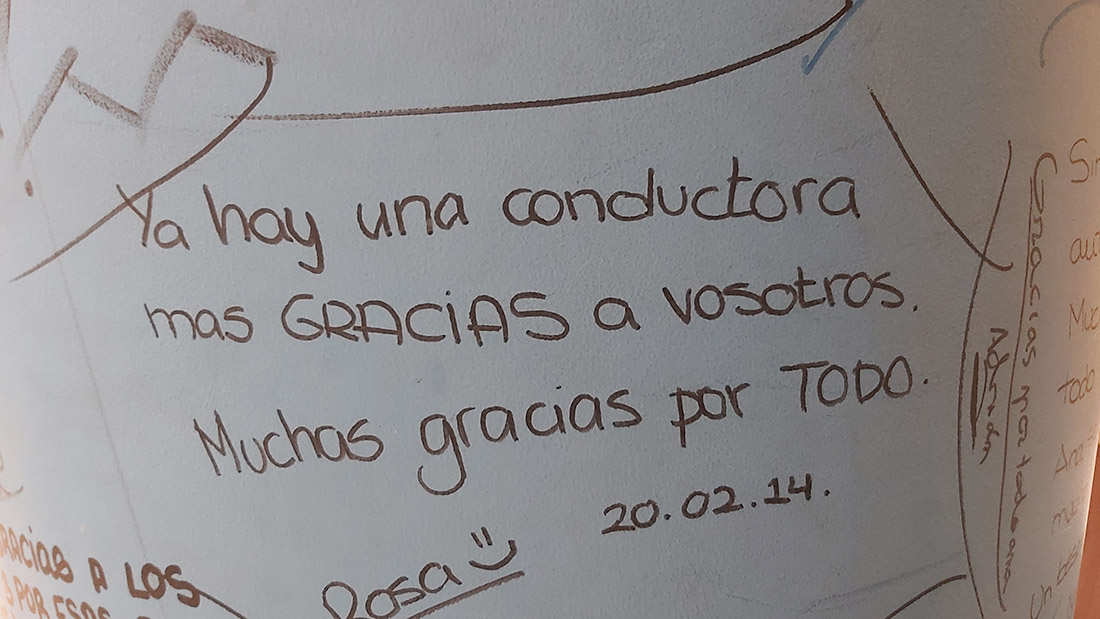 Ya hay una conductora
mas GRACiAS a vosotros.
Muchas gracias por TODO.
20.02.14.
Rosa
GRACias A LOS
POR ESOS
Gracias por todo